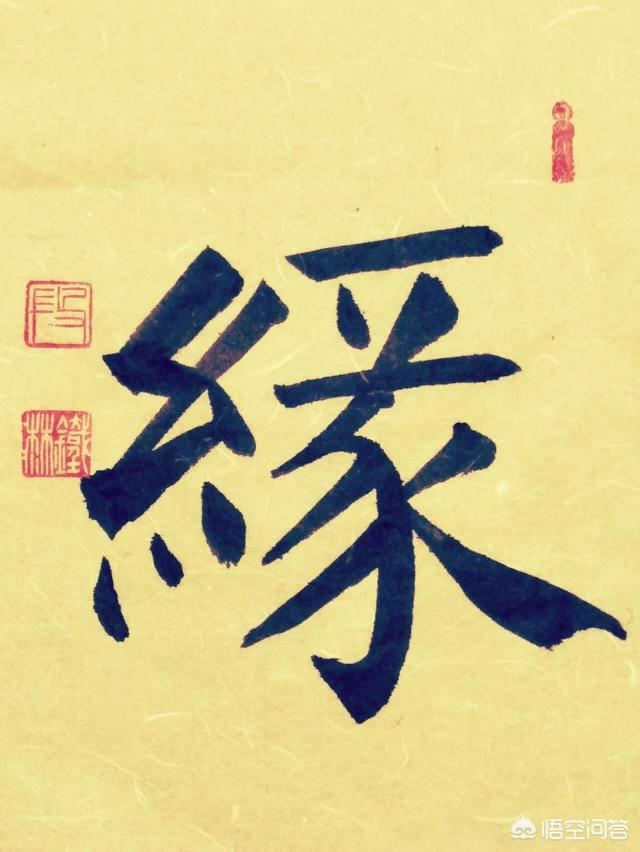 緣
鐵林
悟空问答